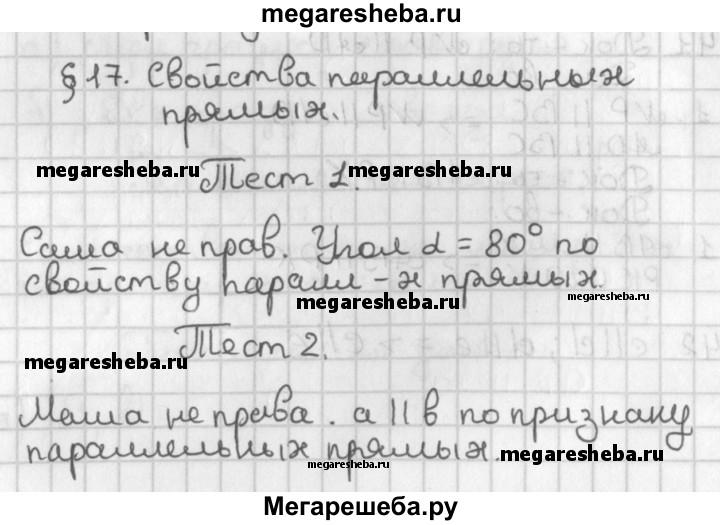 megaresheba.ru
§ 17. Свойства параллельных
прямых.
megaresheba.ru Тест 1. megaresheba.ru
Саша не прав. Угол α = 80° по
свойству паралл-х прямых.
megaresheba.ru megaresheba.ru
Тест 2.
megaresheba.ru
Маша не права. a || в по признаку
параллельных прямых.
megaresheba.ru megaresheba.ru
Мегарешеба.ру